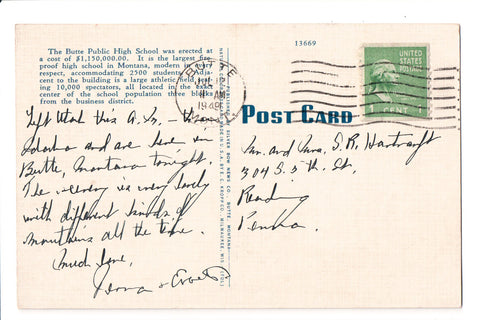 The Butte Public High School was erected at
a cost of $1,150,000.00. It is the largest fire
proof high school in Montana, modern in every
respect, accommodating 2500 students. Adja-
cent to the building is a large athletic field seat-
ing 10,000 spectators, all located in the exact
center of the school population three blocks
from the business district.
13669
BUTTE
11 AM
1949
UNITED
STATES
POSTAGE
1 CENT
POST CARD
Left Utah this A.M. - then
Idaho and are here in
Butte, Montana tonight.
The scenery is very lovely
with different kinds of
mountains all the time.
Much love,
Mr. and Mrs. S. R. Hartranft
304 S. 5th St.
Reading
Penna.